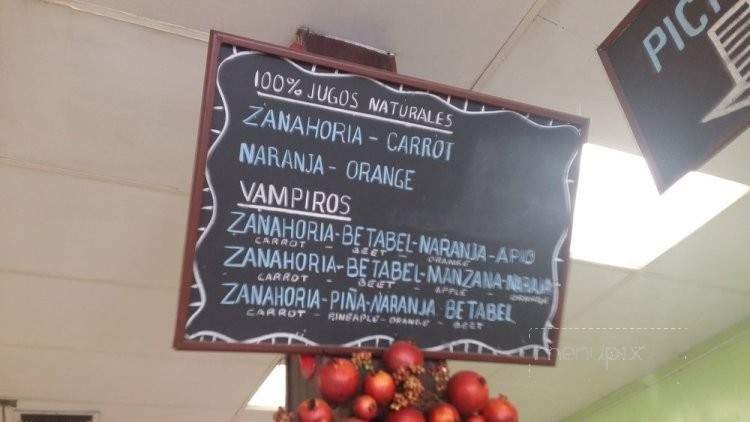 100% JUGOS NATURALES
ZANAHORIA - CARROT
NARANJA - ORANGE
VAMPIROS
ZANAHORIA-BETABEL-NARANJA-APIO
CARROT - BEET - ORANGE
ZANAHORIA-BETABEL-MANZANA-NARANJA
CARROT - BEET - APPLE - ORANGE
ZANAHORIA-PIÑA-NARANJA BETABEL
CARROT - PINEAPPLE-ORANGE - BEET
PIC
menupix